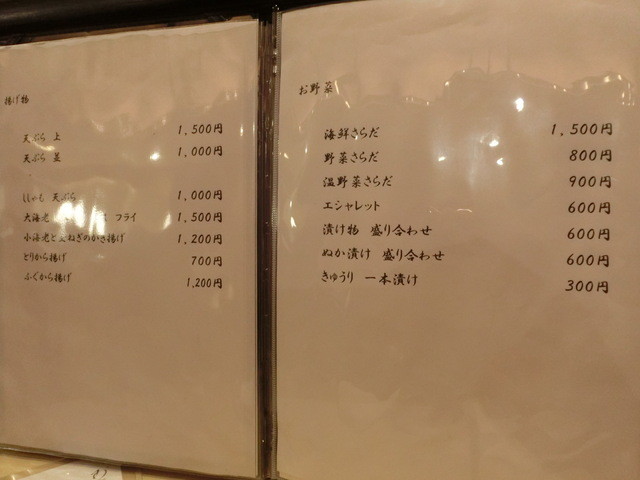 揚げ物
天ぷら 上 1,500円
天ぷら 並 1,000円
ししゃも 天ぷら 1,000円
大海老 フライ 1,500円
小海老と玉ねぎのかき揚げ 1,200円
とりから揚げ 700円
ふぐから揚げ 1,200円
お野菜
海鮮さらだ 1,500円
野菜さらだ 800円
温野菜さらだ 900円
エシャレット 600円
漬け物 盛り合わせ 600円
ぬか漬け 盛り合わせ 600円
きゅうり 一本漬け 300円